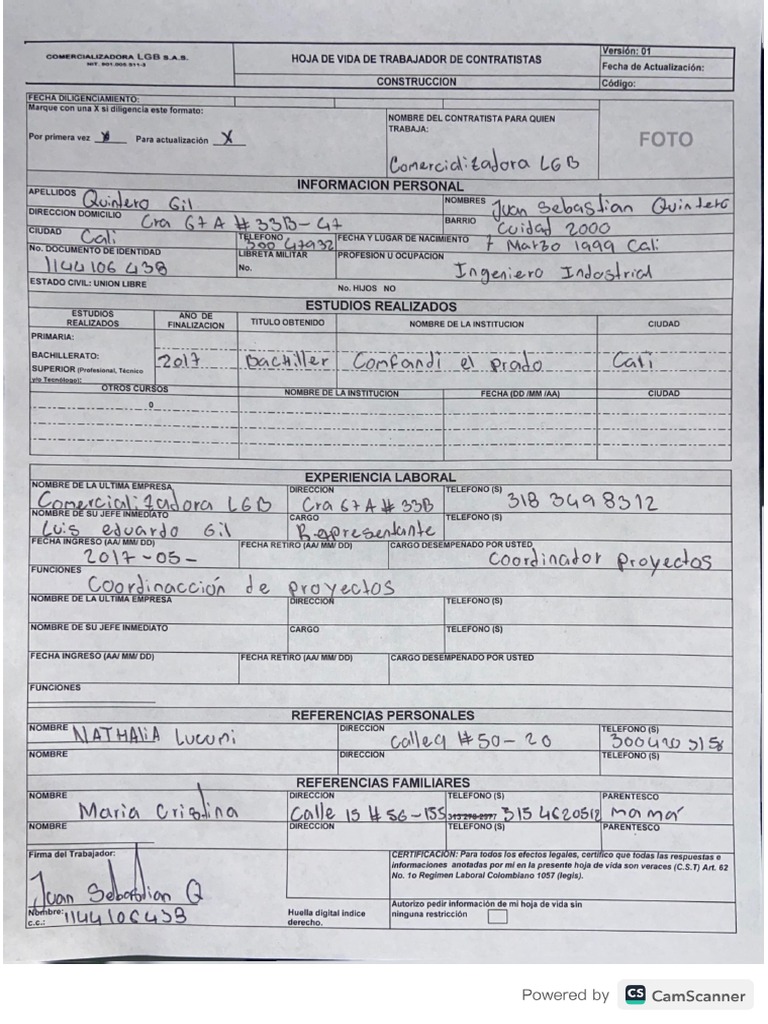 COMERCIALIZADORA LGB S.A.S.
HOJA DE VIDA DE TRABAJADOR DE CONTRATISTAS
Versión: 01
NIT. 901.005.911-3
Fecha de Actualización:
CONSTRUCCION
Código:
FECHA DILIGENCIAMIENTO:
Marque con una X si diligencia este formato:
NOMBRE DEL CONTRATISTA PARA QUIEN TRABAJA:
Por primera vez Para actualización X
FOTO
Comercializadora LGB
INFORMACION PERSONAL
APELLIDOS Quintero Gil NOMBRES Juan Sebastian Quintero
DIRECCION DOMICILIO Cra 67 A # 33B-47 BARRIO Cuidad 2000
CIUDAD Cali TELEFONO 300 47932 FECHA Y LUGAR DE NACIMIENTO 7 Marzo 1999 Cali
No. DOCUMENTO DE IDENTIDAD 1144106438 LIBRETA MILITAR No. PROFESION U OCUPACION Ingeniero Industrial
ESTADO CIVIL: UNION LIBRE No. HIJOS NO
ESTUDIOS REALIZADOS
ESTUDIOS REALIZADOS AÑO DE FINALIZACION TITULO OBTENIDO NOMBRE DE LA INSTITUCION CIUDAD
PRIMARIA:
BACHILLERATO: 2017 Bachiller Comfandi el prado Cali
SUPERIOR (Profesional, Técnico y/o Tecnólogo):
OTROS CURSOS NOMBRE DE LA INSTITUCION FECHA (DD /MM /AA) CIUDAD
0
EXPERIENCIA LABORAL
NOMBRE DE LA ULTIMA EMPRESA Comercializadora LGB DIRECCION Cra 67 A # 33B TELEFONO (S) 318 3498312
NOMBRE DE SU JEFE INMEDIATO Luis eduardo Gil CARGO Representante TELEFONO (S)
FECHA INGRESO (AA/ MM/ DD) 2017-05- FECHA RETIRO (AA/ MM/ DD) CARGO DESEMPENADO POR USTED Coordinador proyectos
FUNCIONES Coordinacción de proyectos
NOMBRE DE LA ULTIMA EMPRESA DIRECCION TELEFONO (S)
NOMBRE DE SU JEFE INMEDIATO CARGO TELEFONO (S)
FECHA INGRESO (AA/ MM/ DD) FECHA RETIRO (AA/ MM/ DD) CARGO DESEMPENADO POR USTED
FUNCIONES
REFERENCIAS PERSONALES
NOMBRE NATHALIA Lucumi DIRECCION calle 9 # 50-20 TELEFONO (S) 300420 3158
NOMBRE DIRECCION TELEFONO (S)
REFERENCIAS FAMILIARES
NOMBRE Maria Cristina DIRECCION Calle 15 # 56-155 TELEFONO (S) 315 4620512 PARENTESCO mamá
NOMBRE DIRECCION TELEFONO (S) PARENTESCO
Firma del Trabajador:
CERTIFICACIÓN: Para todos los efectos legales, certifico que todas las respuestas e
informaciones anotadas por mi en la presente hoja de vida son veraces (C.S.T) Art. 62
No. 1o Regimen Laboral Colombiano 1057 (legis).
Juan Sebastian Q
Nombre:
c.c.: 1144106438
Huella digital indice derecho.
Autorizo pedir información de mi hoja de vida sin
ninguna restricción
Powered by CS CamScanner